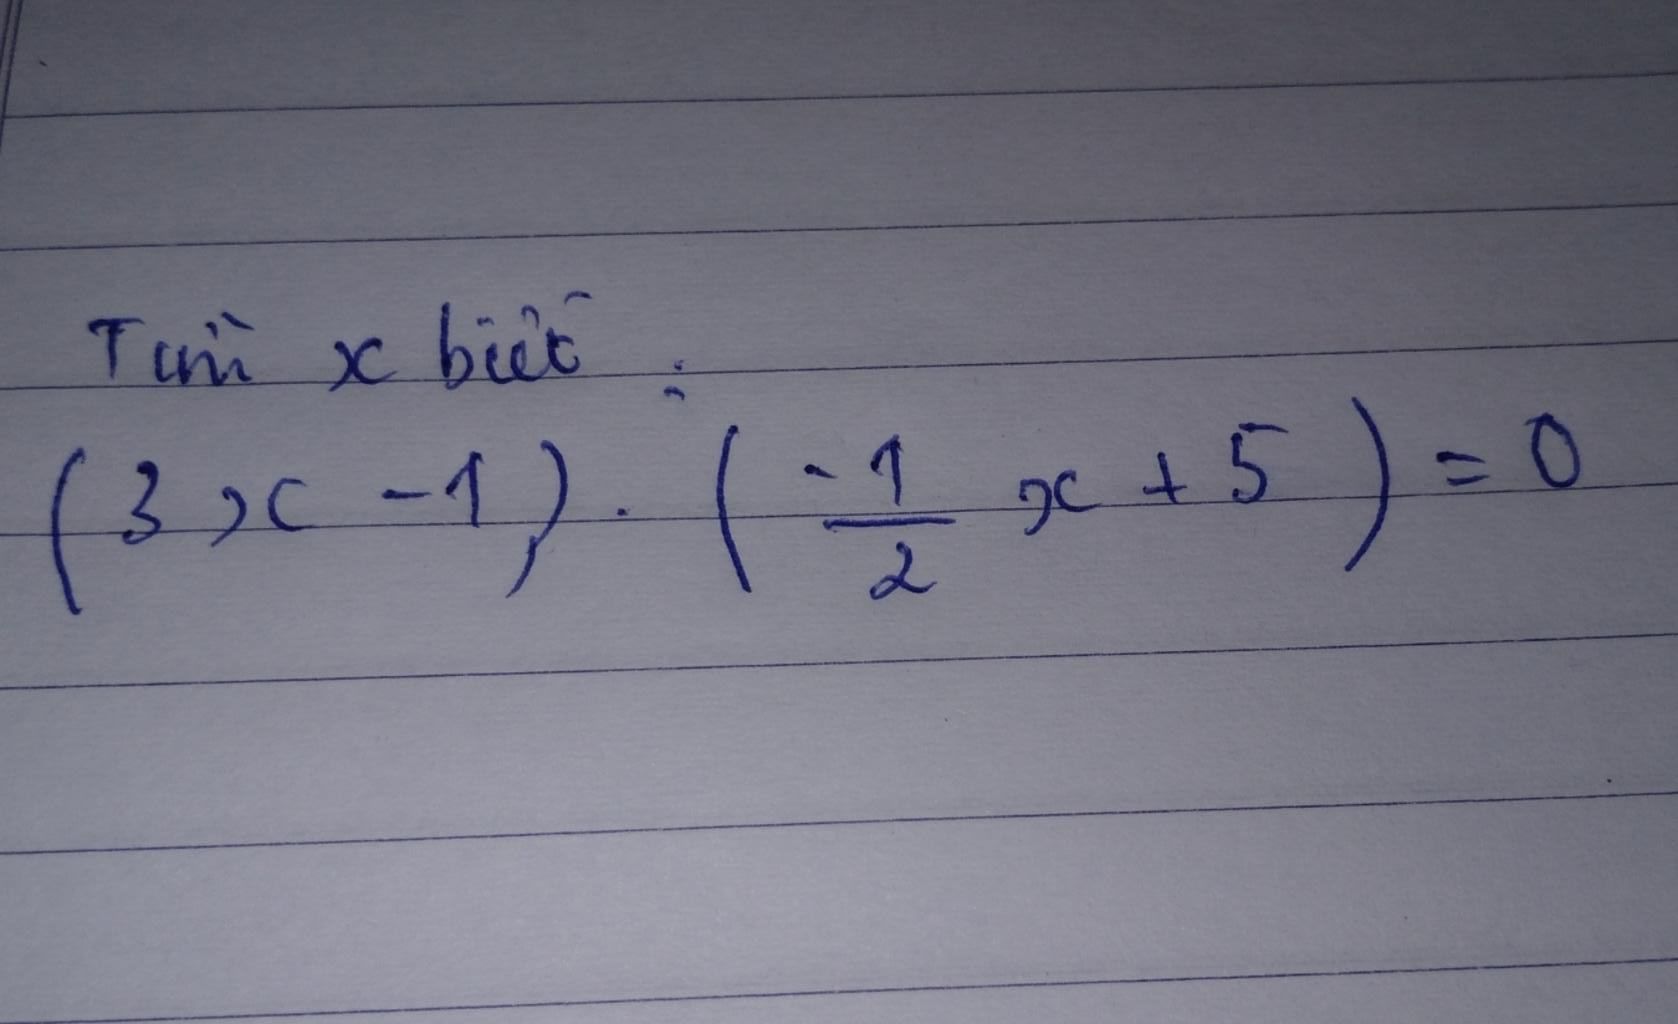 Tìm x biết :
(3x - 1) . (-1/2 x + 5) = 0